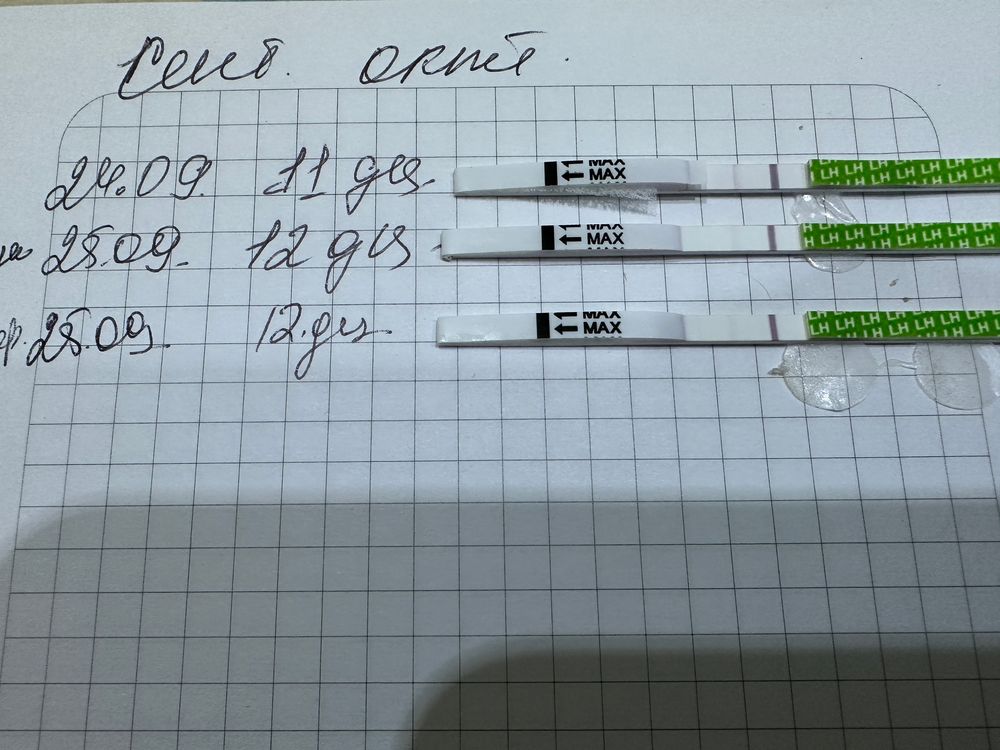 Сент. окт.
24.09. 11 дц. MAX MAX
25.09. 12 дц MAX MAX
25.09. 12.дц. MAX MAX
LH LH LH LH LH LH LH
LH LH LH LH LH LH LH
LH LH LH LH LH LH LH